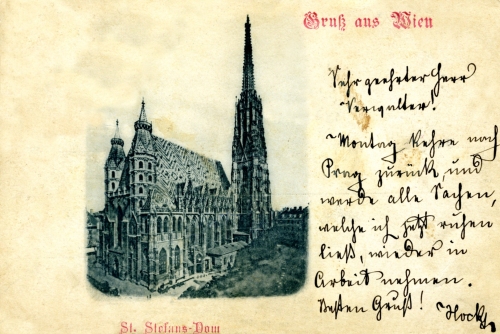 Gruß aus Wien
Sehr geehrter Herr
Verwalter!
Montag kehre nach
Prag zurück, und
werde alle Sachen,
welche ich jetzt ruhen
ließ, wieder in
Arbeit nehmen.
Besten Gruß! Hock
St. Stefans-Dom